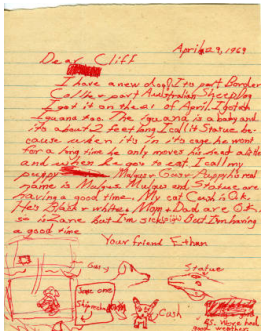 April 29, 1969
Dear Cliff
I have a new dog! Its part Border
Collie + part Australian Sheepdog
I got it on the 21 of April. I got an
Iguana too. The Iguana is a baby and
its about 2 feet long. I call it Statue be-
cause when it's in its cage he wont
for a long time he only moves his head a little
and when he goes to eat. I call my
puppy Gary. Puppy's real
name is Mulgus. Mulgus and Statue are
having a good time. My cat Cash is O.K.
Hes Black + white. Mom + Dad are O.K.
so is Zane But I'm sick. But I'm having
a good time
Your friend Ethan
Gary
Statue
Cash
P.S. We've had
good weather